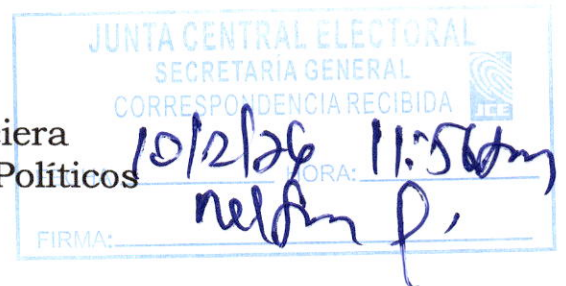 JUNTA CENTRAL ELECTORAL
SECRETARÍA GENERAL
CORRESPONDENCIA RECIBIDA
JCE
ciera
Políticos
10/2/26 HORA: 11:56am
FIRMA: